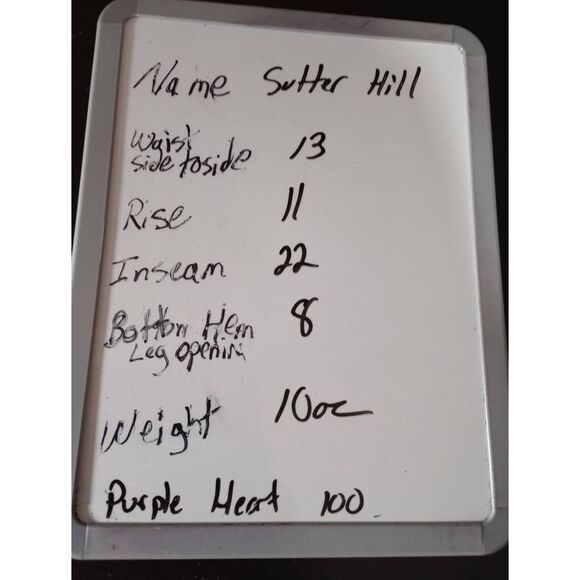 Name Sutter Hill
Waist 13
side toside
Rise 11
Inseam 22
Bottom Hem 8
Leg opening
Weight 10oz
Purple Heart 100